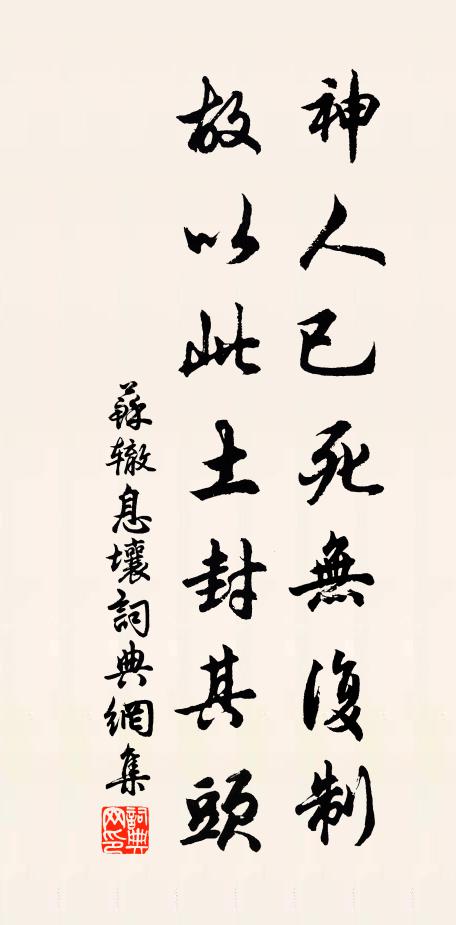 神人已死無復制
故以此土封其頭
蘇辙息壤詞典網集
詞典网印